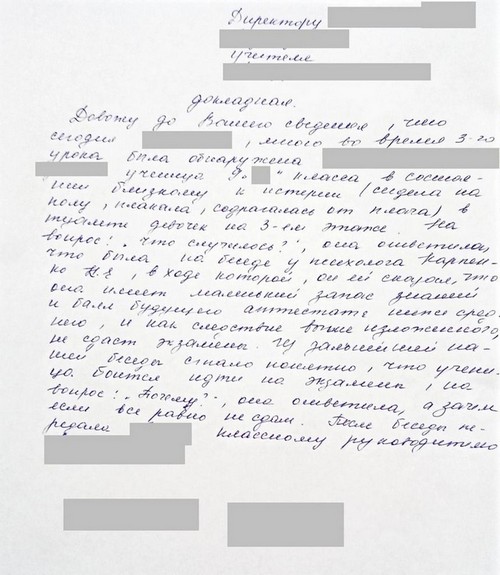 Директору
учителя
докладная.
Довожу до Вашего сведения, что
сегодня , мною во время 3-го
урока была обнаружена
ученица 9 " " класса в состоя-
нии близкому к истерии (сидела на
полу, плакала, содрагалась от плача) в
туалете девочек на 3-ем этаже. На
вопрос: "Что случилось?", она ответила,
что была на беседе у психолога Карпен-
ко , в ходе которой, он ей сказал, что
она имеет маленький запас знаний
и балл будущего аттестата ниже сред-
него, и как следствие выше изложенного,
не сдаст экзамены. Из дальнейшей на-
шей беседы стало понятно, что учени-
ца боится идти на экзамены, на
вопрос: "Почему?", она ответила, а зачем
если все равно не сдам. После беседы пе-
редала классному руководителю